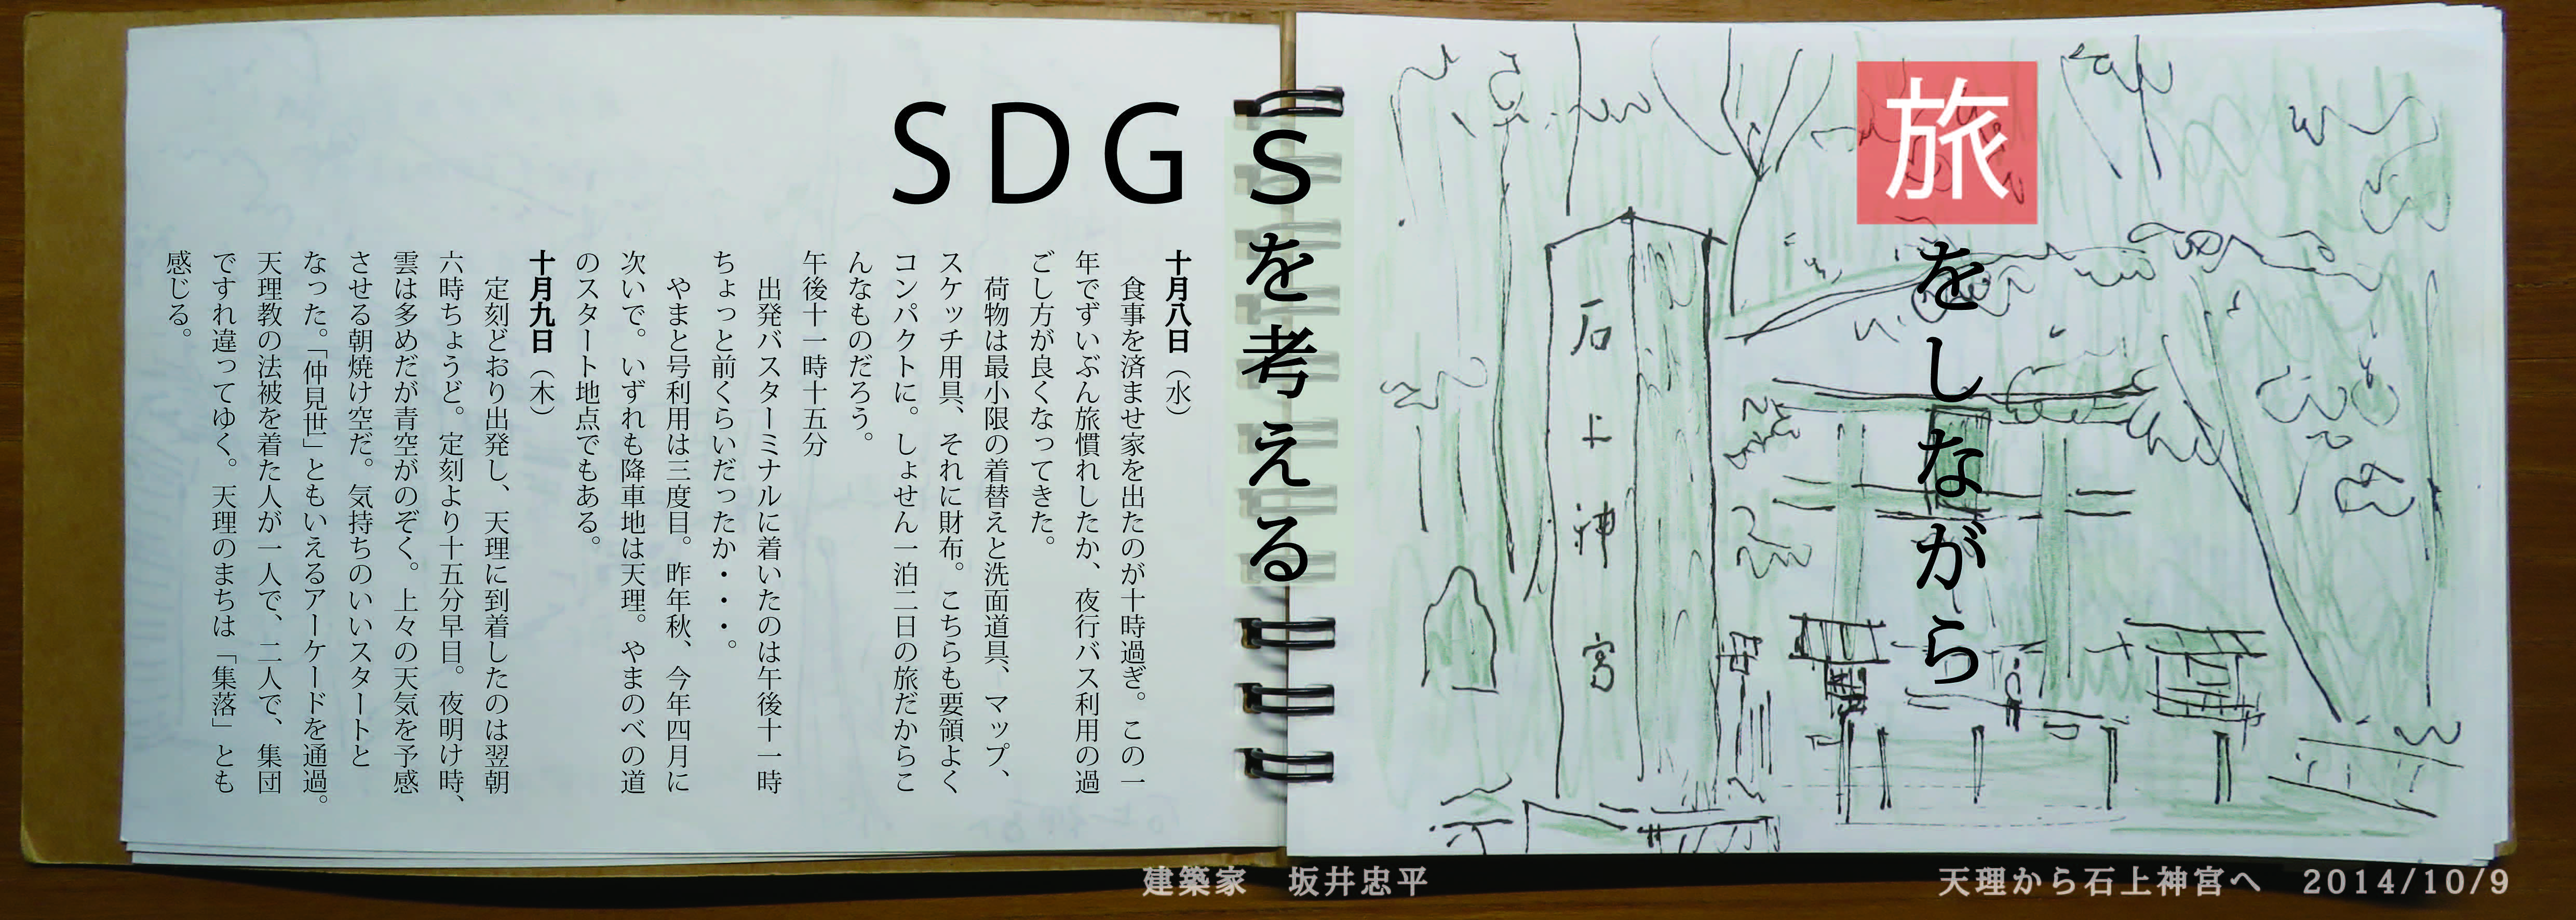 旅をしながら
SDGSを考える
石上神宮
十月八日（水）
食事を済ませ家を出たのが十時過ぎ。この一
年でずいぶん旅慣れしたか、夜行バス利用の過
ごし方が良くなってきた。
荷物は最小限の着替えと洗面道具、マップ、
スケッチ用具、それに財布。こちらも要領よく
コンパクトに。しょせん一泊二日の旅だからこ
んなものだろう。
午後十一時十五分
出発バスターミナルに着いたのは午後十一時
ちょっと前くらいだったか・・・。
やまと号利用は三度目。昨年秋、今年四月に
次いで。いずれも降車地は天理。やまのべの道
のスタート地点でもある。
十月九日（木）
定刻どおり出発し、天理に到着したのは翌朝
六時ちょうど。定刻より十五分早目。夜明け時、
雲は多めだが青空がのぞく。上々の天気を予感
させる朝焼け空だ。気持ちのいいスタートと
なった。「仲見世」ともいえるアーケードを通過。
天理教の法被を着た人が一人で、二人で、集団
ですれ違ってゆく。天理のまちは「集落」とも
感じる。
建築家　坂井忠平
天理から石上神宮へ　2014/10/9